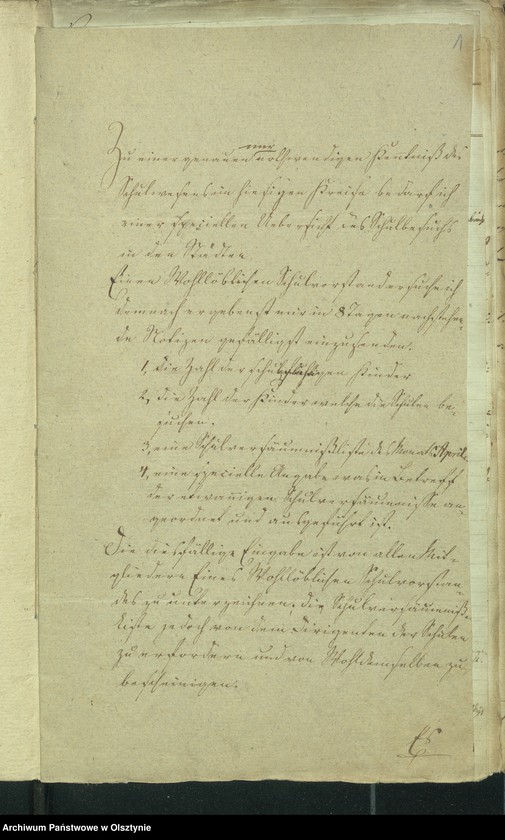 1
mir
Zu einer genauen nothwendigen Kentniß des
Schulwesens im hiesigen Kreise bedarf ich
einer speciellen Uebersicht des Schulbesuchs
in den Städten.
Einen Wohllöblichen Schulvorstand ersuche ich
demnach ergebenst mir in 8 Tagen nachstehen-
de Notizen gefälligst einzusenden.
1, die Zahl der schulpflichtigen Kinder
2, die Zahl der Kinder welche die Schulen be-
suchen.
3, eine Schulversäumnißliste des Monats April.
4, eine specielle Angabe was in Betreff
der etwanigen Schulversäumnisse an-
geordnet und ausgeführt ist.
Die diesfällige Eingabe ist von allen Mit-
gliedern Eines Wohllöblichen Schulvorstan-
des zu unterzeichnen, die Schulversäumniß-
Liste jedoch von dem Dirigenten der Schulen
zu erfordern und von Wohldemselben zu
bescheinigen.
Es
Archiwum Państwowe w Olsztynie